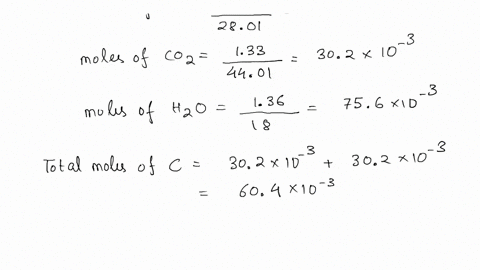 28.01
moles of CO2 = 1.33 / 44.01 = 30.2 × 10^-3
moles of H2O = 1.36 / 18 = 75.6 × 10^-3
Total moles of C = 30.2 × 10^-3 + 30.2 × 10^-3
= 60.4 × 10^-3